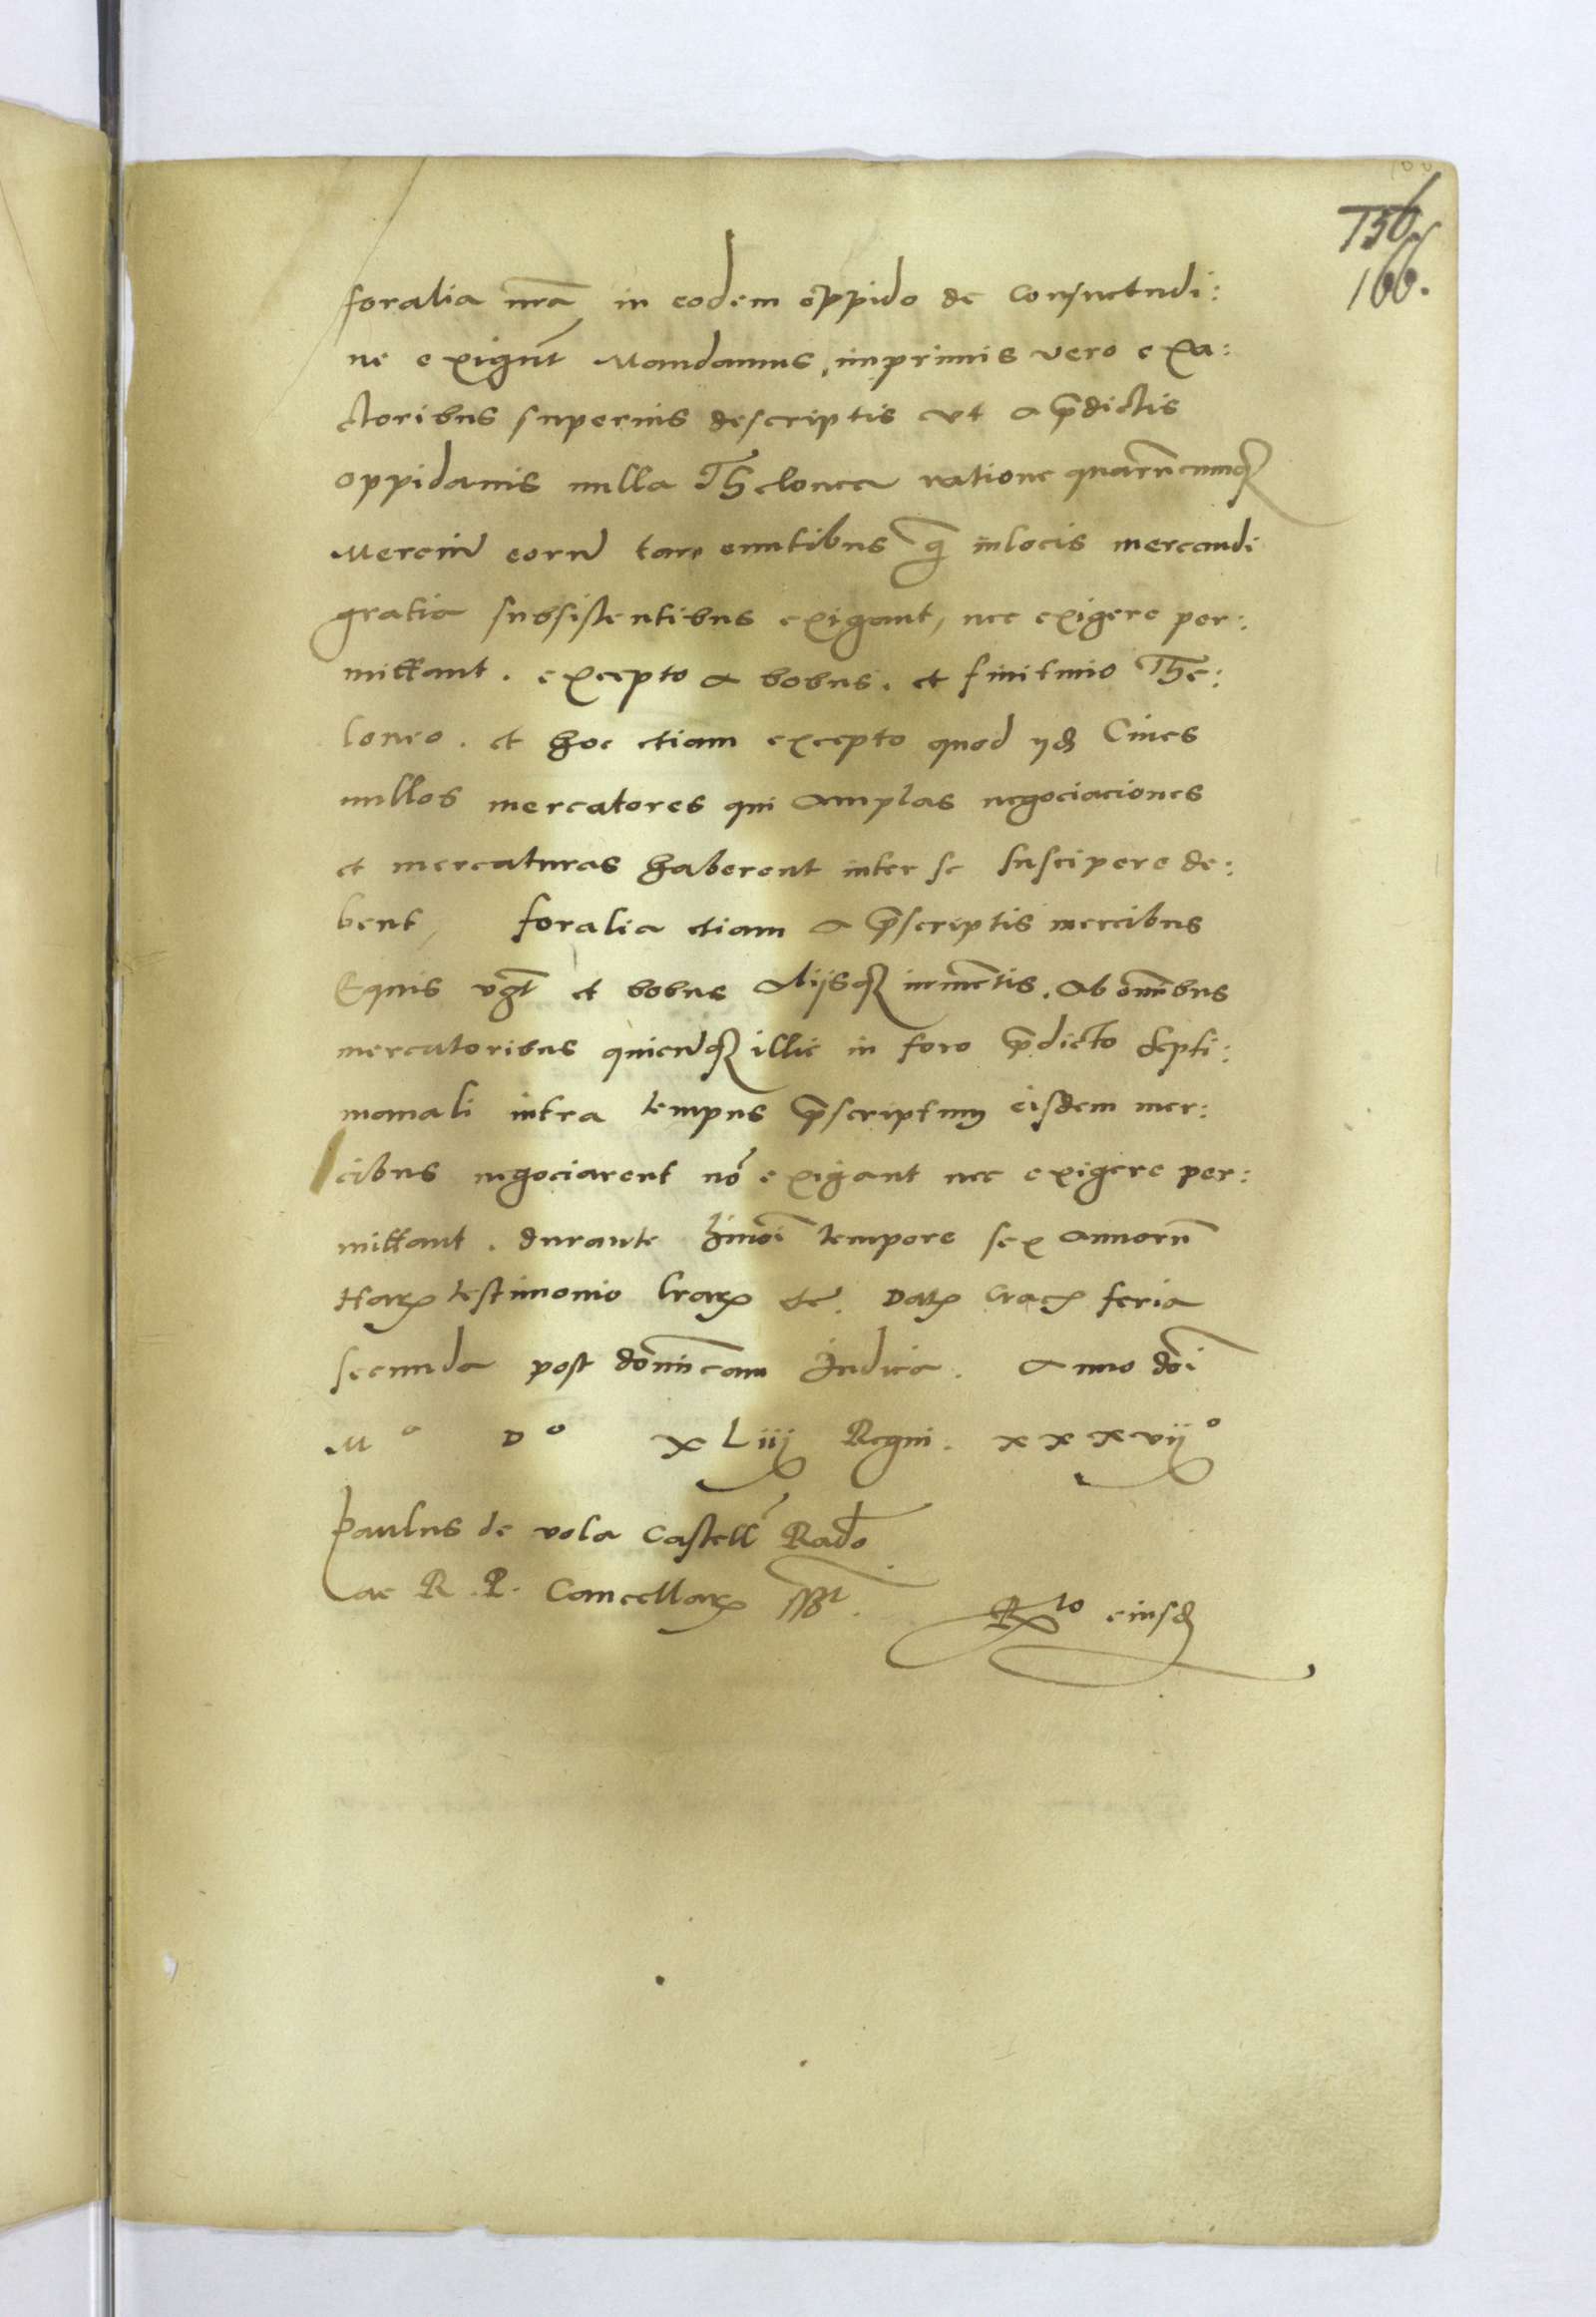 156
166.
foralia nrã in eodem oppido de consuetudi:
ne exigūt Mandamus, imprimis vero exa:
ctoribus superius descriptis ut a p̄dictis
oppidanis nulla Thelonea ratione quarūcunq̨
Merciū eorū tam euntibus q̄ in locis mercandi
gratia subsistentibus exigant, nec exigere per:
mittant. excepto a bobus. et finitimo The:
loneo. et hoc etiam excepto quod ijd Ciues
nullos mercatores qui amplas negociaciones
et mercaturas haberent inter se suscipere de:
bent, foralia etiam a p̄scriptis mercibus
Equis vɀt et bobus alijsq̨ iumētis. ab omībus
mercatoribus quicūq̨ illic in foro p̄dicto septi:
manali intra tempus p̄scriptum eisdem mer:
cibus negociarent nō exigant nec exigere per:
mittant. durante hmōi tempore sex annorū
Harꝝ testimonio lrarꝝ etc. Datꝝ Cracꝝ feria
secunda post domīcam Iudica. Anno dōi
Mº Dº XLiiij Regni. xxxviijº
Paulus de vola Castellꝰ Rado
ac R. P. Cancellarꝝ sszt.
Rꝝto eiusd